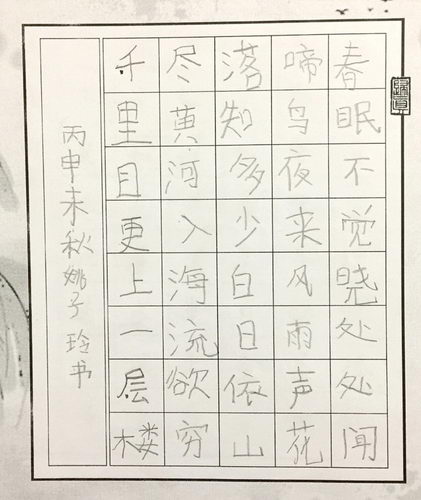 春眠不觉晓处处闻
啼鸟夜来风雨声花
落知多少白日依山
尽黄河入海流欲穷
千里目更上一层楼
丙申末秋姚子玲书